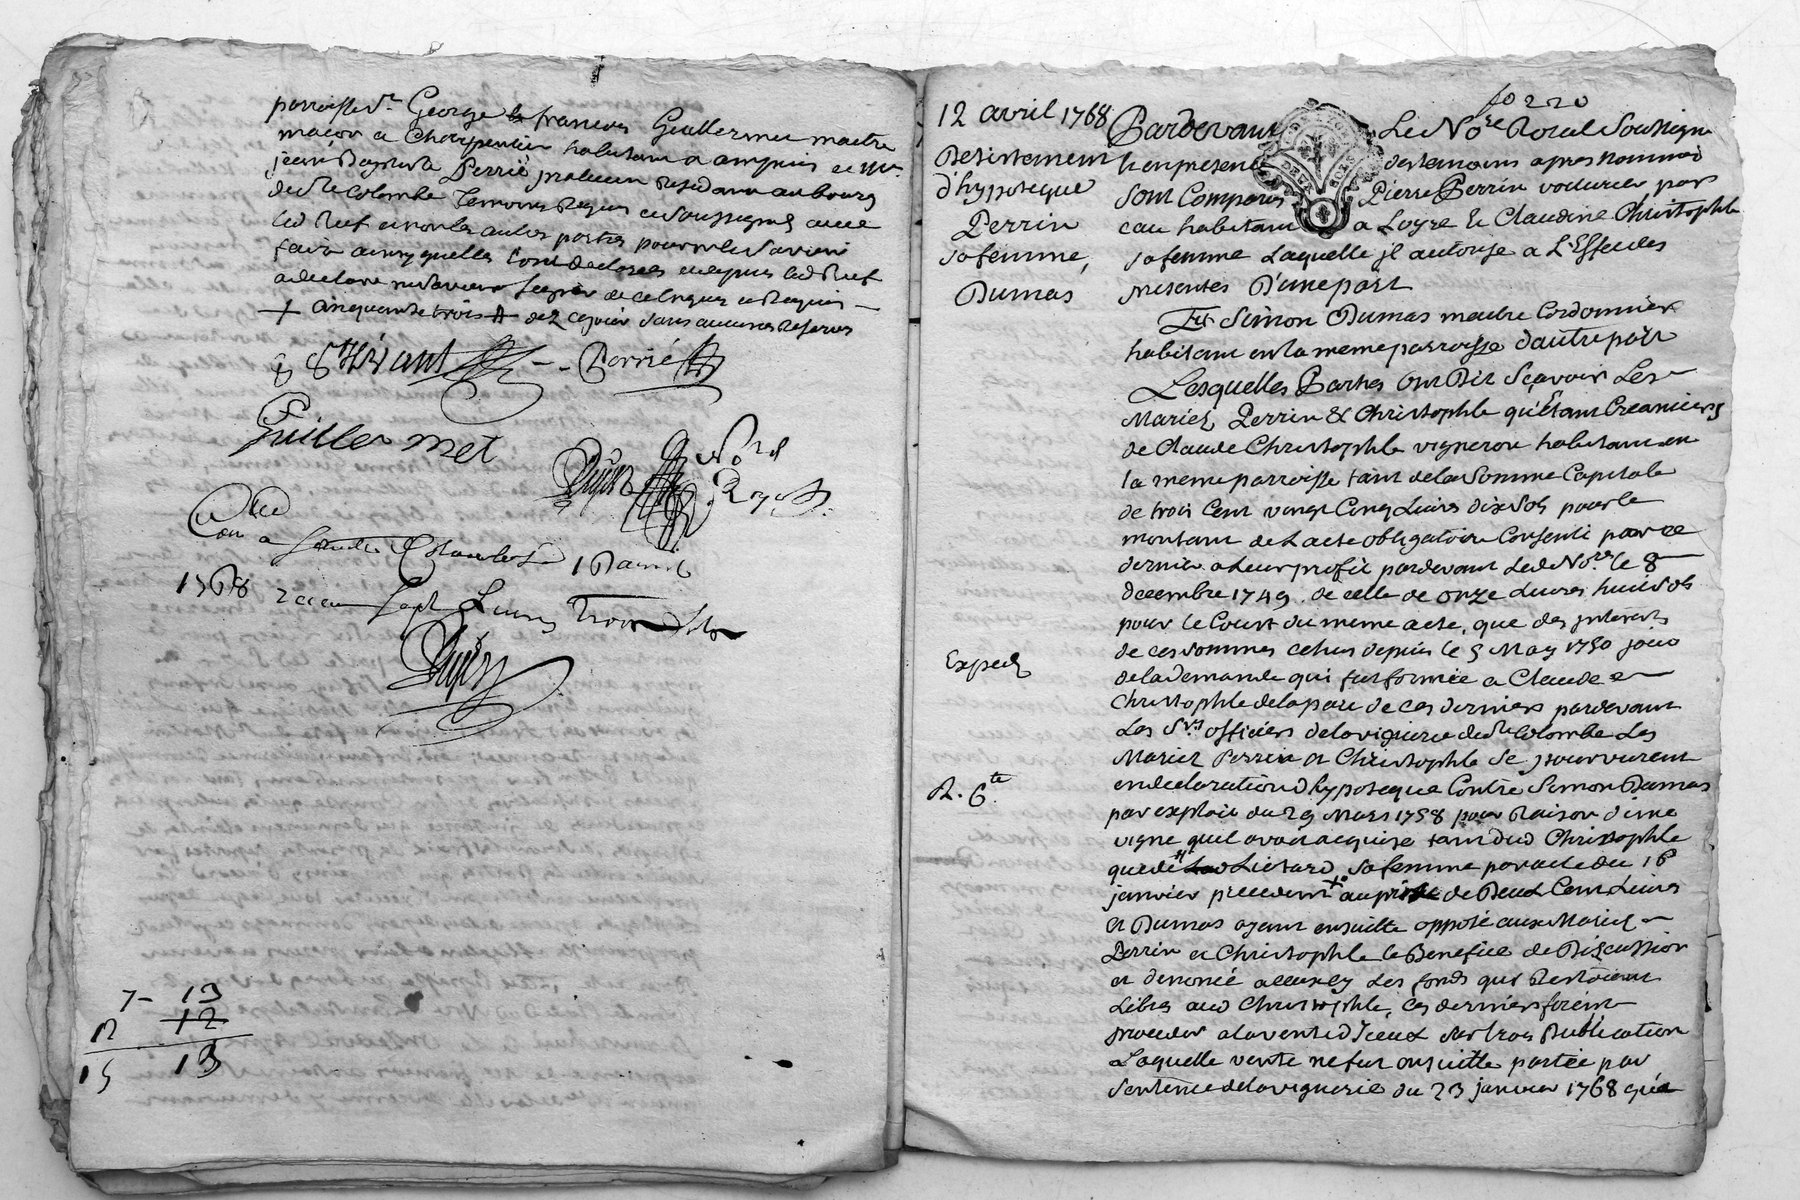 parroisse St George & francois Guillermet maitre
macon & Charpentier habitant a ampuis et Mre
jean Baptiste Perrié praticien residant au bourg
de Ste Colombe Temoins Requis et Soussignés avec
led
faire ainsy quelles l'ont declarées
a declaré ne scavoir signer de ce Enquis et Requis
+ cinquante trois + sans aucunes Reserves
Perrié
Guillermet
Dujast Nore
Royal
Con a Ste Colombe avril
1768 Sept Livres Trois Sols
Dujast
7 - 13
12
15 13
fo 220
12 avril 1768
Desistement
d'hypoteque
Perrin
sa femme,
Dumas
Exped
R. 6te
Pardevant Le Nore Roial Soussigné
& en presence des temoins apres nommés
Sont Comparus Pierre Perrin voiturier par
eau habitant a Loyre & Claudine Christophle
sa femme Laquelle jl autorise a L'Effet des
presentes D'une part
Et Simon Dumas maitre Cordonnier
habitant en la meme parroisse d'autre part
Lesquelles Parties Ont Dit Sçavoir Les
Mariés Perrin & Christophle qu'Etant Creanciers
de Claude Christophle vigneron habitant en
la meme parroisse tant de la Somme Capitale
de trois Cent vingt Cinq Livres dix Sols pour le
montant de L'acte obligatoire Consenti par ce
dernier a Leur profit pardevant Led Nore le 8
decembre 1749. de celle de onze Livres huit Sols
pour le Coust du meme acte, que des jnterets
de ces sommes echus depuis le 5 May 1750 jour
de la demande qui fut formée a Claude
Christophle de la part de ces derniers pardevant
Les Srs officiers de la viguerie de Ste Colombe Les
Mariés Perrin et Christophle se pourvurent
en declaration d'hypoteque Contre Simon Dumas
par exploit du 29 Mars 1758 pour Raison d'une
vigne quil avoit acquise tant dud Christophle
que de sa femme par acte du 16
janvier precedent + au prix de Deux Cent Livres
Et Dumas ayant ensuitte opposé aux Mariés
Perrin et Christophle le Benefice de Discussion
et denoncé a Les fonds qui Restoient
Libres aud Christophle, Ces derniers firent
proceder a la vente d'Jceux sur trois Publication
Laquelle vente ne fut ensuitte portée par
Sentence de la viguerie du 23 janvier 1768 qu'a